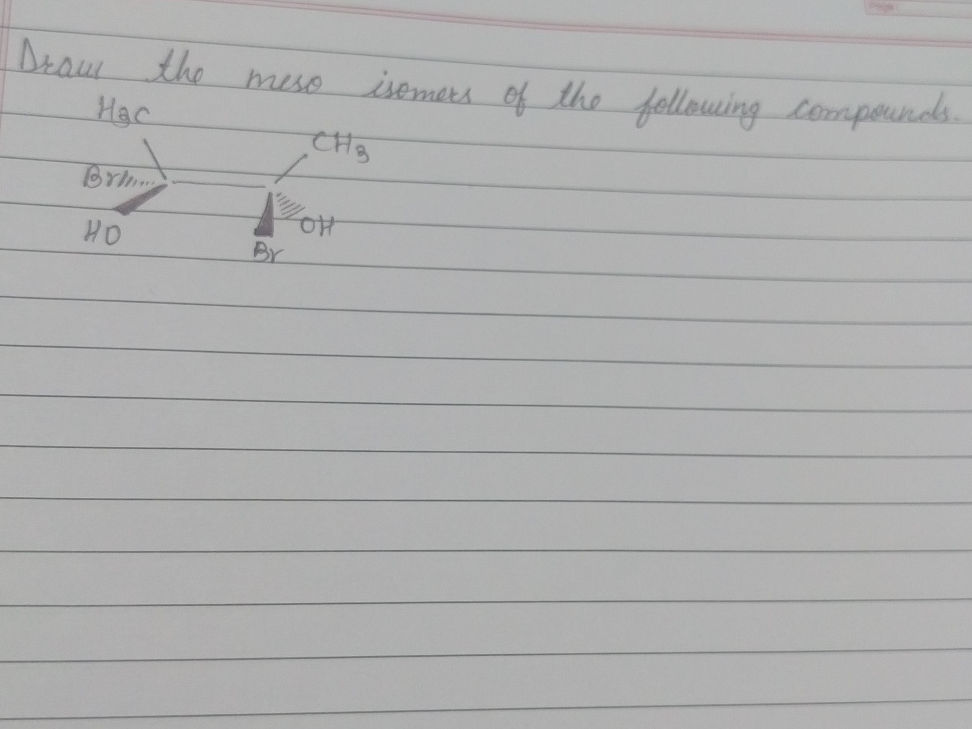 Draw the meso isomers of the following compounds.
H3C
CH3
Br
HO
OH
Br